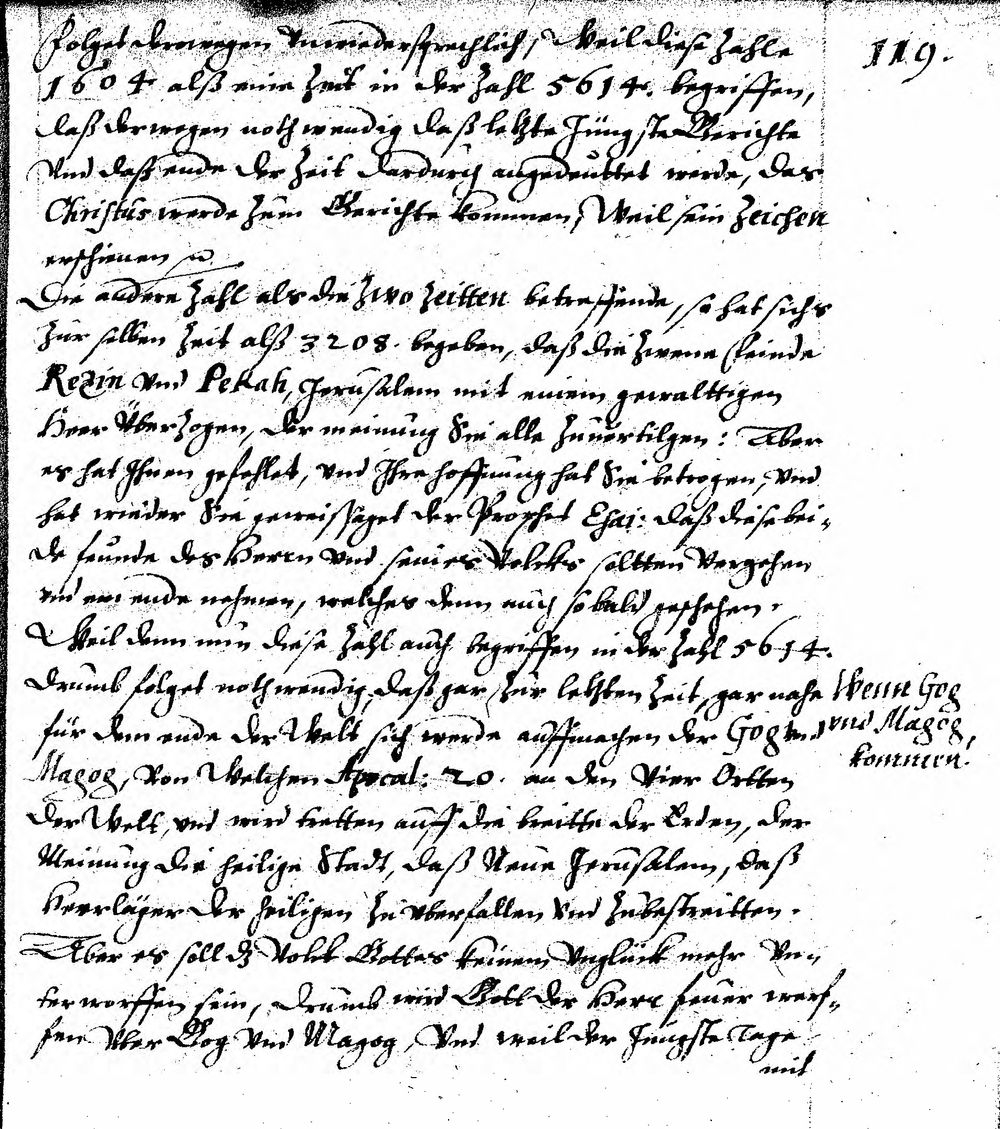 119.
folget derowegen unwiedersprechlich, Weil diese Zahle
1604 alß eine Zeit in der Zahl 5614. begriffen,
daß derwegen nothwendig daß letzte Jüngste Gerichte
Und daß ende der Zeit dardurch angedeuttet werde, das
Christus werde zum Gerichte kommen, Weil sein Zeichen
erschienen
Die andere Zahl als die Zwo Zeitten betreffende, so hat sichs
Zur selben Zeit alß 3208. begeben, daß die Zwene feinde
Rezin Und Pekah, Jerusalem mit einem gewalttigen
Heer Uberzogen, der meinung Sie alle Zuuertilgen: Aber
es hat Ihnen gefehlet, und Ihre hoffnung hat Sie betrogen, und
hat wieder Sie geweissaget der Prophet Esai: daß diese bei-
de feunde des Herrn und seines Volcks soltten Vergehen
und ein ende nehmen, welches denn auch so bald geschehen.
Weil denn nun diese Zahl auch begriffen in der Zahl 5614.
drumb folget nothwendig, daß gar Zur letzten Zeit, gar nahe
für dem ende der Welt sich werde auffmachen der Gog und
Magog, Von Welchen Apocal: 20. an den Vier Ortten
der Welt, und wird tretten auff die breitte der Erden, der
Meinung die heilige Stadt, daß Neue Jerusalem, daß
Heerläger der heiligen Zu uberfallen Und Zubestreitten.
Aber es soll dz Volck Gottes keinem Unglück mehr Un-
terworffen sein, drumb wird Gott der Herr feuer werf-
fen Uber Gog Und Magog, Und weil der Jüngste Tage
mit
Wenn Gog
und Magog,
kommen.